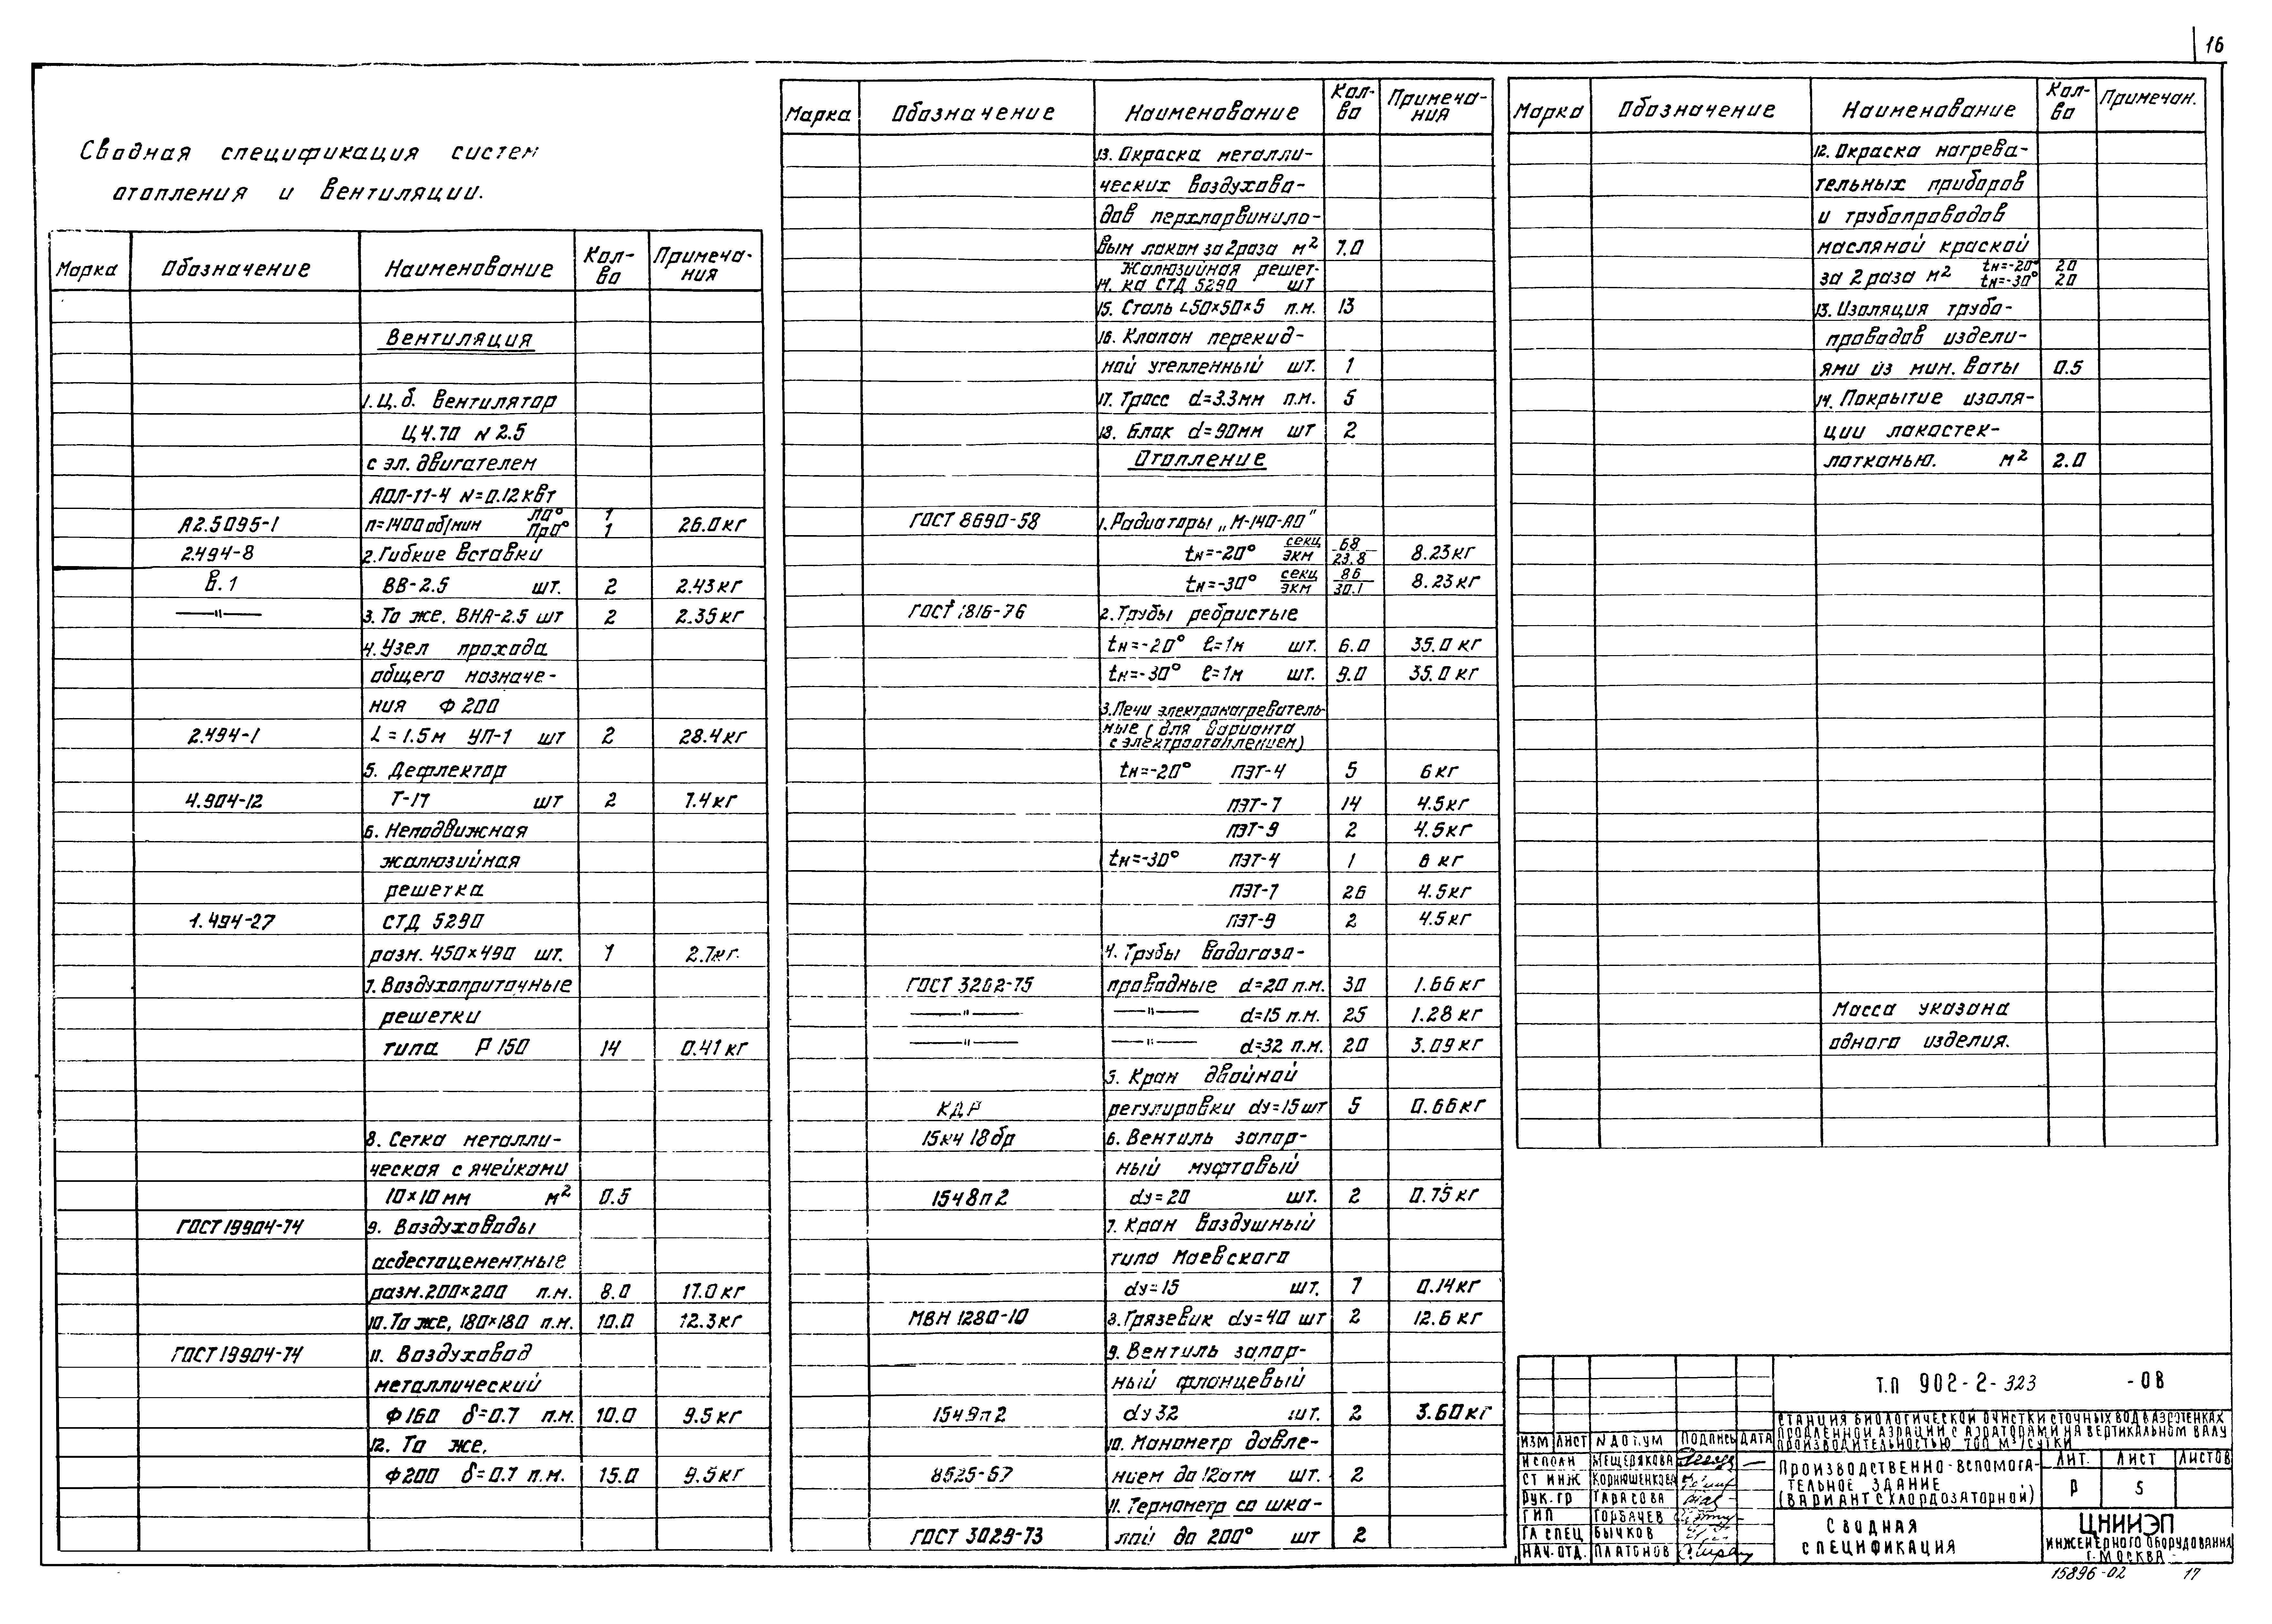 16
Сводная спецификация систем
отопления и вентиляции.
Марка Обозначение Наименование Кол-во Примеча-ния
Вентиляция
1. Ц.б. вентилятор
Ц.4.70 N 2.5
с эл. двигателем
АОЛ-11-4 N=0.12 квт
А2.5095-1 n=1400 об/мин ЛО° 1 26.0 кг
ПрО° 1
2.494-8 2. Гибкие вставки
в.1 ВВ-2.5 шт. 2 2.43 кг
—"— 3. То же, ВНА-2.5 шт 2 2.35 кг
4. Узел прохода
общего назначе-
ния Ф 200
2.494-1 L=1.5м УП-1 шт 2 28.4 кг
5. Дефлектор
4.904-12 Т-17 шт 2 7.4 кг
6. Неподвижная
жалюзийная
решетка
1.494-27 СТД 5290
разм. 450×490 шт. 1 2.7 кг.
7. Воздухоприточные
решетки
типа Р 150 14 0.41 кг
8. Сетка металли-
ческая с ячейками
10×10 мм м² 0.5
ГОСТ 19904-74 9. Воздуховоды
асбестоцементные
разм. 200×200 п.м. 8.0 17.0 кг
10. То же, 180×180 п.м. 10.0 12.3 кг
ГОСТ 19904-74 11. Воздуховод
металлический
Ф 160 δ=0.7 п.м. 10.0 9.5 кг
12. То же,
Ф 200 δ=0.7 п.м. 15.0 9.5 кг
Марка Обозначение Наименование Кол-во Примеча-ния
13. Окраска металли-
ческих воздухово-
дов перхлорвинило-
вым лаком за 2 раза м² 7.0
Жалюзийная решет-
14. ка СТД 5290 шт
15. Сталь ∟50×50×5 п.м. 13
16. Клапан перекид-
ной утепленный шт. 1
17. Тросс d=3.3мм п.м. 5
18. Блок d=90мм шт 2
Отопление
ГОСТ 8690-58 1. Радиаторы „М-140-АО"
tн=-20° секц/экм 68/23.8 8.23 кг
tн=-30° секц/экм 86/30.1 8.23 кг
ГОСТ 1816-76 2. Трубы ребристые
tн=-20° ℓ=1м шт. 6.0 35.0 кг
tн=-30° ℓ=1м шт. 9.0 35.0 кг
3. Печи электронагреватель-
ные (для варианта
с электроотоплением)
tн=-20° ПЭТ-4 5 6 кг
ПЭТ-7 14 4.5 кг
ПЭТ-9 2 4.5 кг
tн=-30° ПЭТ-4 1 6 кг
ПЭТ-7 26 4.5 кг
ПЭТ-9 2 4.5 кг
4. Трубы водогазо-
ГОСТ 3262-75 проводные d=20 п.м. 30 1.66 кг
—"— —"— d=15 п.м. 25 1.28 кг
—"— —"— d=32 п.м. 20 3.09 кг
5. Кран двойной
КДР регулировки dу=15 шт 5 0.66 кг
15кч 18бр 6. Вентиль запор-
ный муфтовый
15ч8п2 dу=20 шт. 2 0.75 кг
7. Кран воздушный
типа Маевского
dу=15 шт. 7 0.14 кг
МВН 1280-10 8. Грязевик dу=40 шт 2 12.6 кг
9. Вентиль запор-
ный фланцевый
15ч9п2 dу 32 шт. 2 3.60 кг
10. Манометр давле-
8625-67 нием до 12атм шт. 2
11. Термометр со шка-
ГОСТ 3029-73 лой до 200° шт 2
Марка Обозначение Наименование Кол-во Примечан.
12. Окраска нагрева-
тельных приборов
и трубопроводов
масляной краской
за 2 раза м² tн=-20° 20
tн=-30° 20
13. Изоляция трубо-
проводов издели-
ями из мин. ваты 0.5
14. Покрытие изоля-
ции лакостек-
лотканью. м² 2.0
Масса указана
одного изделия.
Т.П 902-2-323 -ОВ
СТАНЦИЯ БИОЛОГИЧЕСКОЙ ОЧИСТКИ СТОЧНЫХ ВОД В АЭРОТЕНКАХ
ПРОДЛЕННОЙ АЭРАЦИИ С АЭРАТОРАМИ НА ВЕРТИКАЛЬНОМ ВАЛУ
ПРОИЗВОДИТЕЛЬНОСТЬЮ 700 М³/СУТКИ
ИЗМ ЛИСТ N ДОКУМ ПОДПИСЬ ДАТА
ИСПОЛН МЕЩЕРЯКОВА
СТ ИНЖ КОРНЮШЕНКОВА
РУК.ГР ТАРАСОВА
ГИП ГОРБАЧЕВ
ГЛ СПЕЦ БЫЧКОВ
НАЧ.ОТД. ПЛАТОНОВ
ПРОИЗВОДСТВЕННО-ВСПОМОГА-
ТЕЛЬНОЕ ЗДАНИЕ
(ВАРИАНТ С ХЛОРДОЗАТОРНОЙ)
ЛИТ. ЛИСТ ЛИСТОВ
Р 5
СВОДНАЯ
СПЕЦИФИКАЦИЯ
ЦНИИЭП
ИНЖЕНЕРНОГО ОБОРУДОВАНИЯ
Г. МОСКВА
15896-02 17